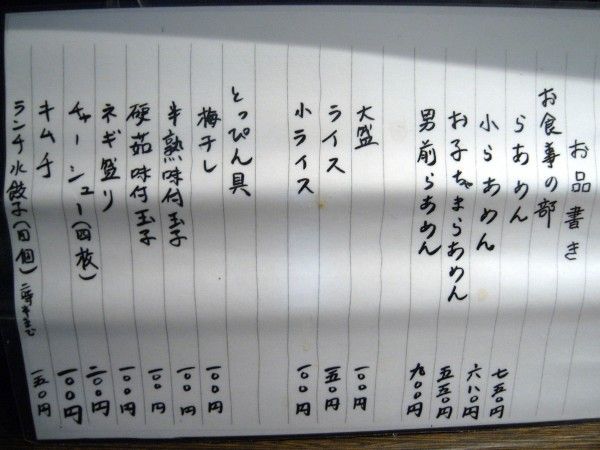 お品書き
お食事の部
らあめん 七五〇円
小らあめん 六八〇円
お子ちゃまらあめん 五五〇円
男前らあめん 九〇〇円
大盛 一〇〇円
ライス 一五〇円
小ライス 一〇〇円
とっぴん具
梅干し 一〇〇円
半熟味付玉子 一〇〇円
硬茹味付玉子 一〇〇円
ネギ盛り 一〇〇円
チャーシュー(四枚) 二〇〇円
キムチ 一〇〇円
ランチ水餃子(四個)二時半まで 一五〇円